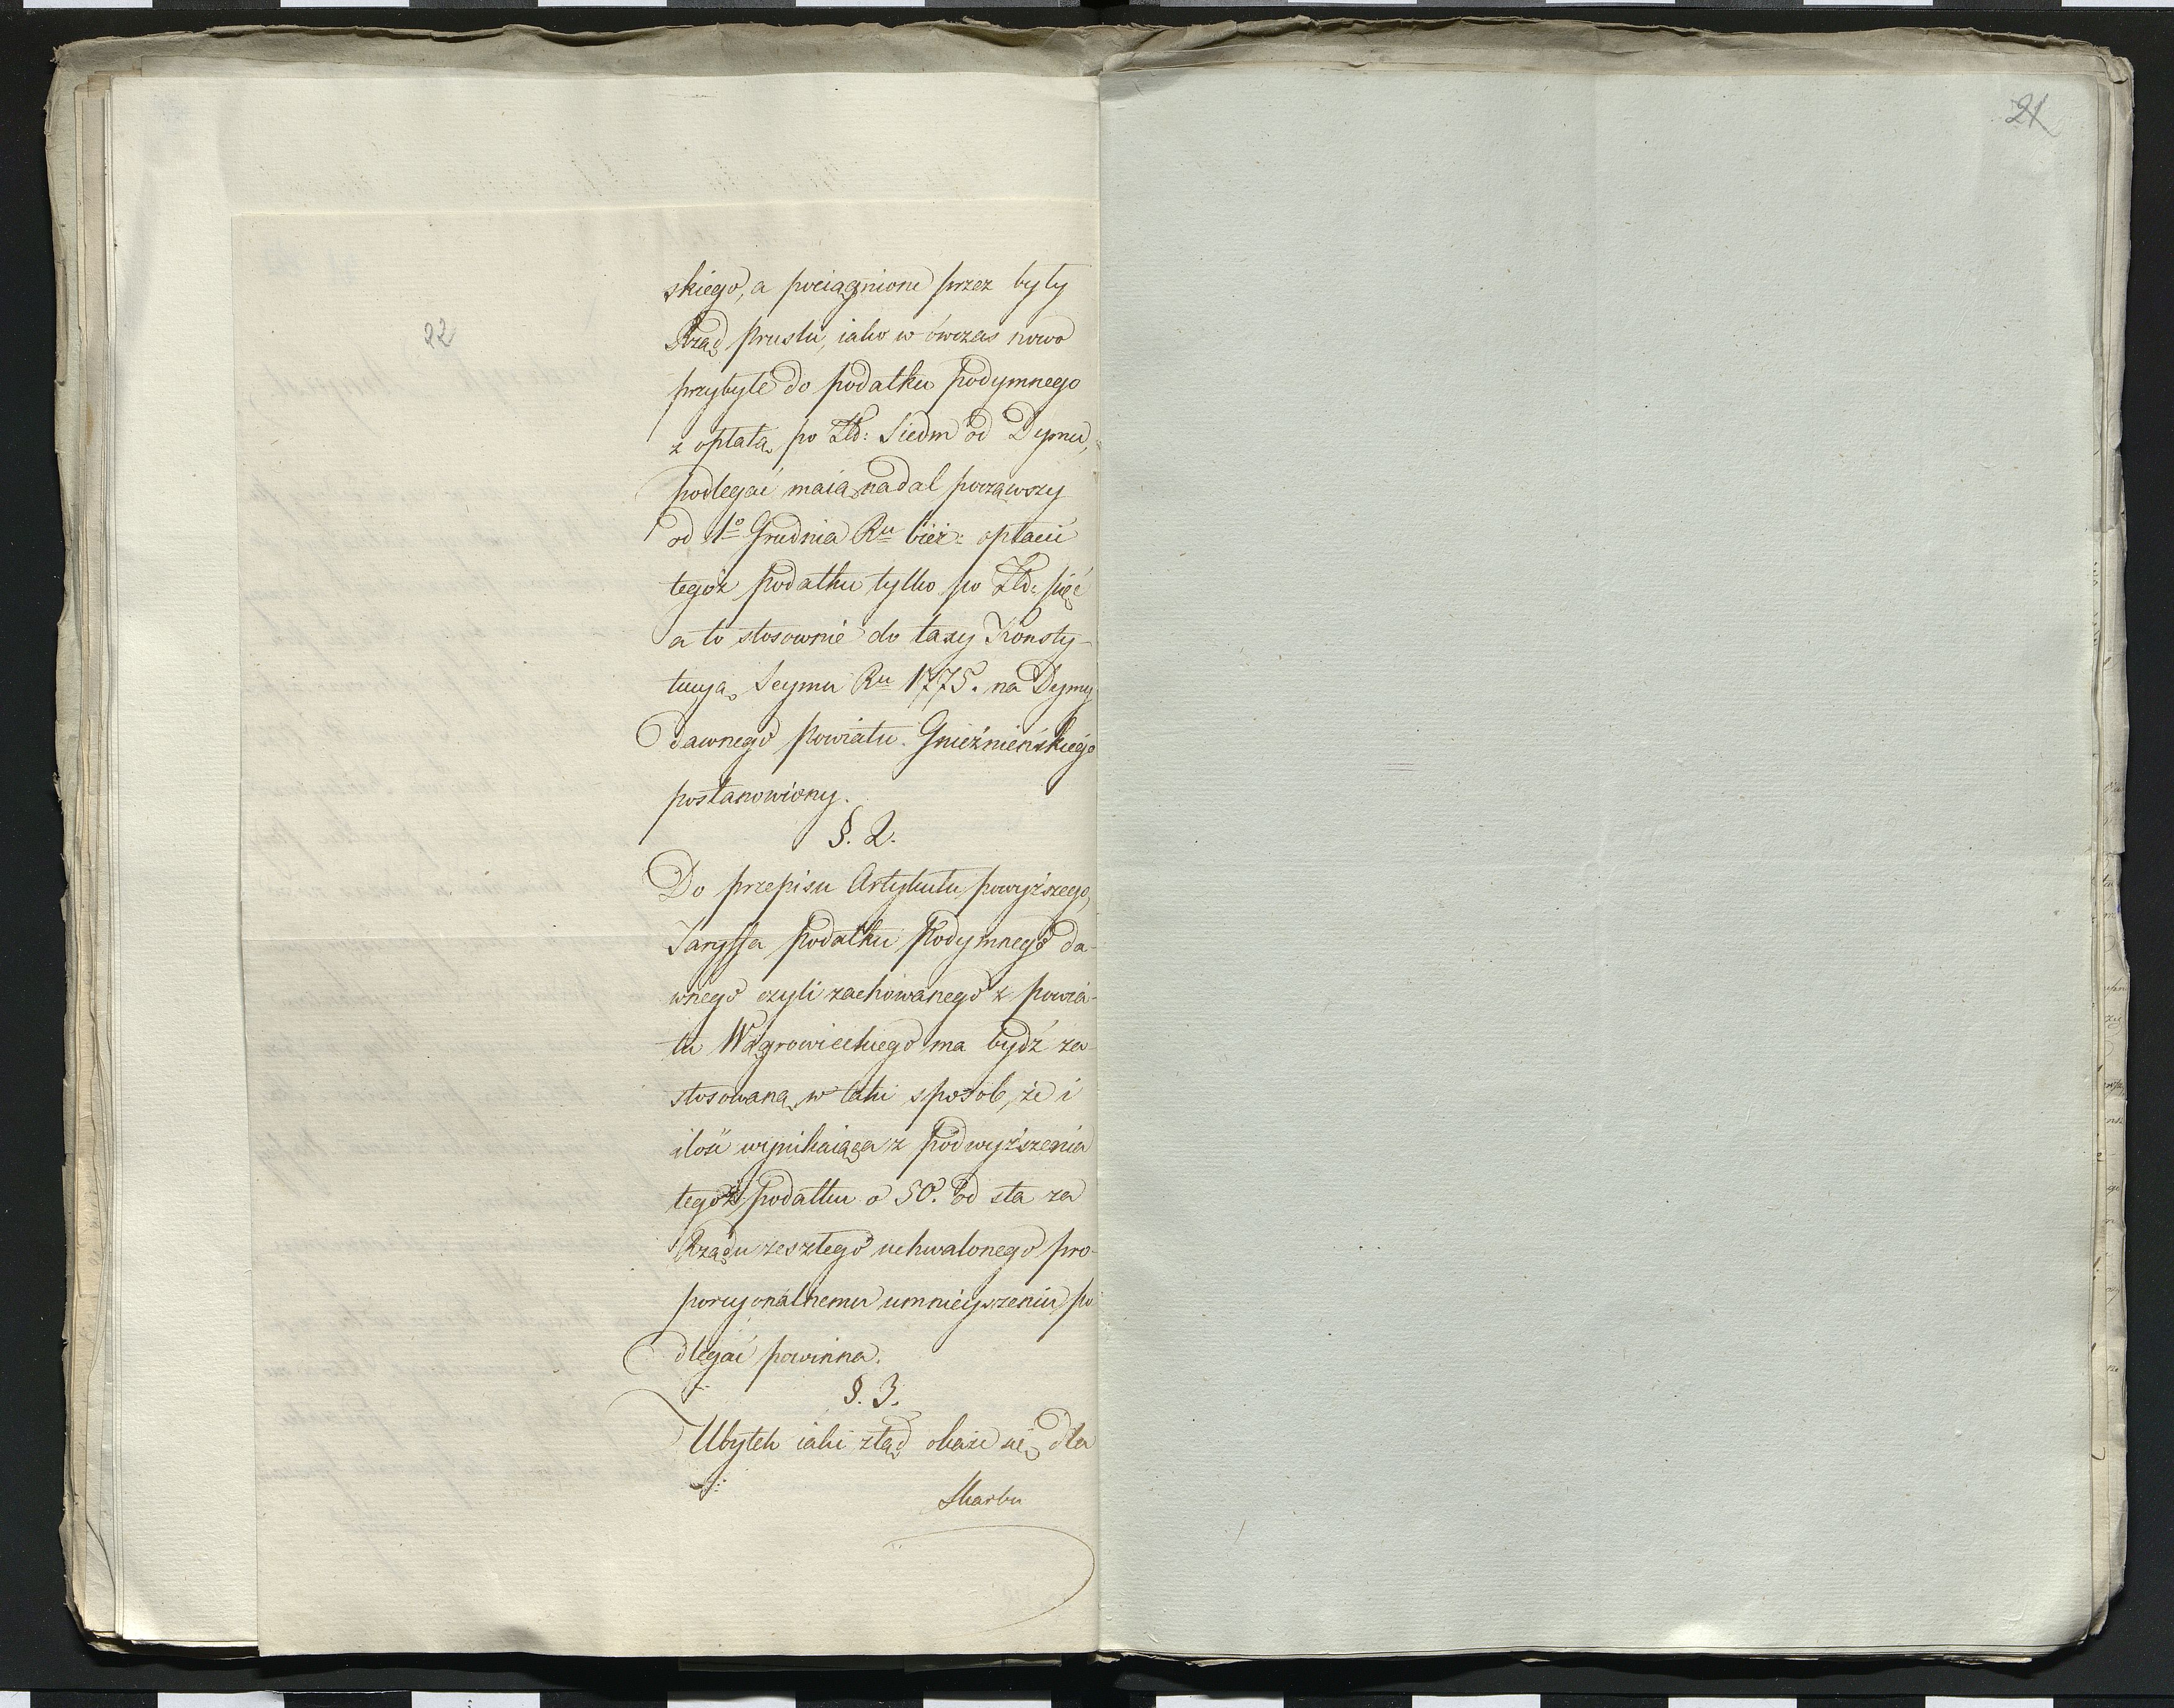 21
22
skiego, a pociągnione przez były
Rząd Pruski, iako w ówczas nowo
przybyłe do podatku Podymnego
z opłatą po Złd: Siedm od Dymu,
podlegać maią nadal począwszy
od 1º Grudnia Ru bież: opłacie
tegoż podatku tylko po Złd: pięć
a to stosownie do taxy Konsty-
tucyą Seymu Ru 1775. na Dymy
dawnego Powiatu Gnieźnieńskiego
postanowiony.
§. 2.
Do przepisu Artykułu powyższego,
Taryffa Podatku Podymnego da-
wnego czyli zachowanego z powia-
tu Wągrowieckiego ma bydź za-
stosowaną w taki sposob, że i
ilość wynikaiąca z podwyższenia
tegoż podatku o 50. od sta za
Rządu zeszłego uchwalonego pro-
porcyonalnemu umnieyszeniu po
dlegać powinna.
§. 3.
Ubytek iaki ztąd okaże się dla
Skarbu